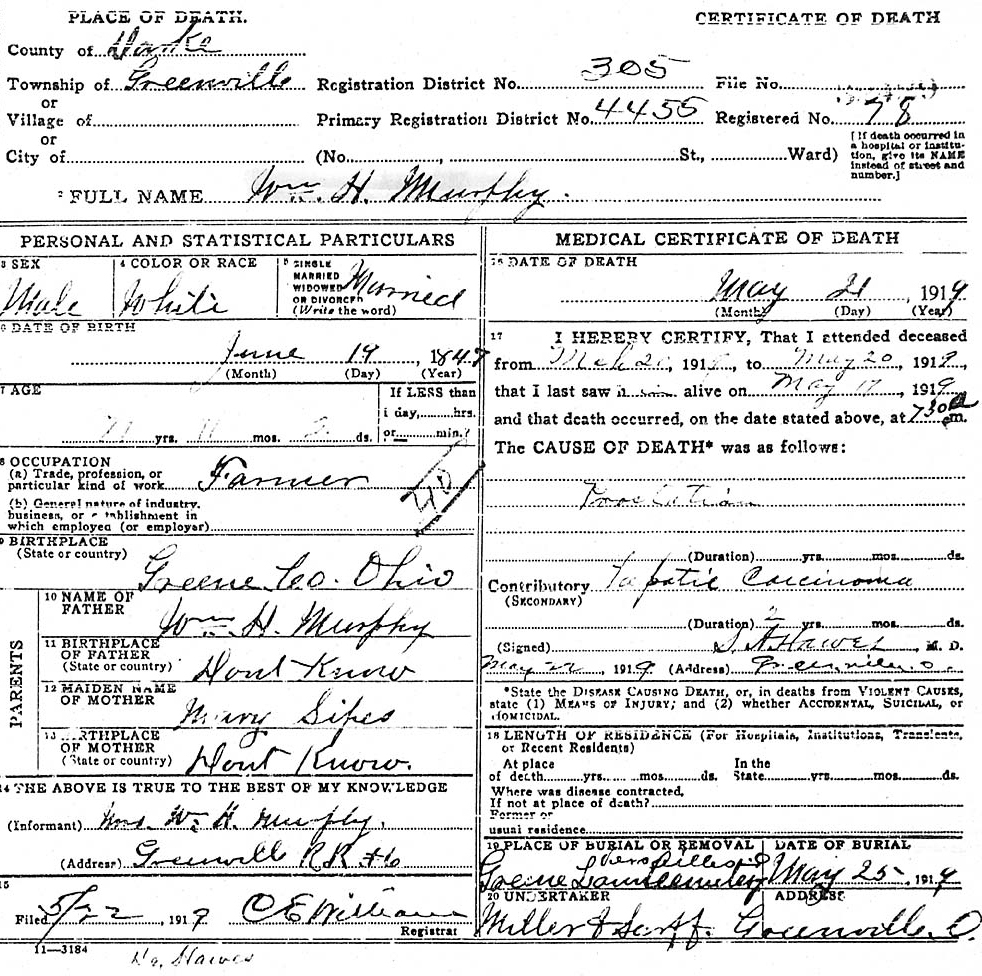 PLACE OF DEATH. CERTIFICATE OF DEATH
County of Darke
Township of Greenville Registration District No. 305 File No.
or
Village of Primary Registration District No. 4455 Registered No. 78
or
City of (No. , St., Ward) [If death occurred in a hospital or institution, give its NAME instead of street and number.]
2 FULL NAME Wm. H. Murphy.
PERSONAL AND STATISTICAL PARTICULARS
3 SEX 4 COLOR OR RACE 5 SINGLE MARRIED WIDOWED OR DIVORCED (Write the word)
Male White Married
6 DATE OF BIRTH
June 19, 1847
(Month) (Day) (Year)
7 AGE If LESS than
1 day, hrs.
71 yrs. 11 mos. 2 ds. or min.?
8 OCCUPATION
(a) Trade, profession, or
particular kind of work Farmer
40
(b) General nature of industry,
business, or establishment in
which employed (or employer)
9 BIRTHPLACE
(State or country)
Greene Co. Ohio
PARENTS
10 NAME OF
FATHER
Wm. H. Murphy
11 BIRTHPLACE
OF FATHER
(State or country) Dont Know
12 MAIDEN NAME
OF MOTHER
Mary Sipes
13 BIRTHPLACE
OF MOTHER
(State or country) Dont Know.
14 THE ABOVE IS TRUE TO THE BEST OF MY KNOWLEDGE
(Informant) Mrs. Wm. H. Murphy.
(Address) Greenville RR #6
15
Filed 5/22 1919 C E Williams
Registrar
11—3184
MEDICAL CERTIFICATE OF DEATH
16 DATE OF DEATH
May 21, 1919
(Month) (Day) (Year)
17 I HEREBY CERTIFY, That I attended deceased
from Mch 20, 191 , to May 20 1919
that I last saw him alive on May 17, 1919
and that death occurred, on the date stated above, at 7 30 a m.
The CAUSE OF DEATH* was as follows:
(Duration) yrs. mos. ds.
Contributory Carcinoma
(SECONDARY)
(Duration) 2 yrs. mos. ds.
(Signed) S A Hawes M. D.
May 22 1919 (Address) Greenville O.
*State the DISEASE CAUSING DEATH, or, in deaths from VIOLENT CAUSES,
state (1) MEANS OF INJURY; and (2) whether ACCIDENTAL, SUICIDAL, or
HOMICIDAL.
18 LENGTH OF RESIDENCE (For Hospitals, Institutions, Transients,
or Recent Residents)
At place In the
of death yrs. mos. ds. State yrs. mos. ds.
Where was disease contracted,
If not at place of death?
Former or
usual residence
19 PLACE OF BURIAL OR REMOVAL DATE OF BURIAL
Versailles O
Greene Lawn Cemetery May 25, 1919
20 UNDERTAKER ADDRESS
Miller & Greenville, O.
Hawes